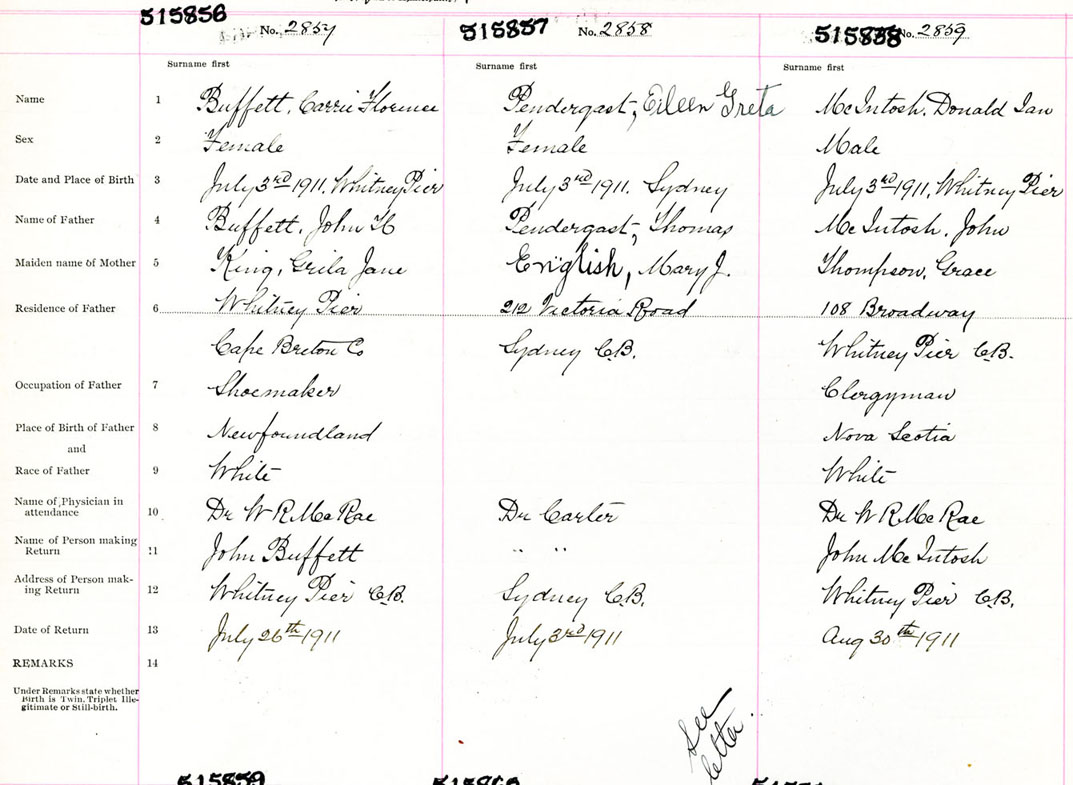 515856 No. 2857 515857 No. 2858 515858 No. 2859
Surname first Surname first Surname first
Name 1 Buffett, Carrie Florence Pendergast, Eileen Greta McIntosh, Donald Ian
Sex 2 Female Female Male
Date and Place of Birth 3 July 3rd 1911, Whitney Pier July 3rd 1911, Sydney July 3rd 1911, Whitney Pier
Name of Father 4 Buffett, John H Pendergast, Thomas McIntosh, John
Maiden name of Mother 5 King, Jane English, Mary J. Thompson, Grace
Residence of Father 6 Whitney Pier 212 Victoria Road 108 Broadway
Cape Breton Co Sydney C.B. Whitney Pier C.B.
Occupation of Father 7 Shoemaker Clergyman
Place of Birth of Father 8 Newfoundland Nova Scotia
and
Race of Father 9 White White
Name of Physician in
attendance 10 Dr W R McRae Dr Carter Dr W R McRae
Name of Person making
Return 11 John Buffett " " John McIntosh
Address of Person mak-
ing Return 12 Whitney Pier C.B. Sydney C.B. Whitney Pier C.B.
Date of Return 13 July 26th 1911 July 3rd 1911 Aug 30th 1911
REMARKS 14
Under Remarks state whether
Birth is Twin, Triplet Ille-
gitimate or Still-birth.
See
letter
515859